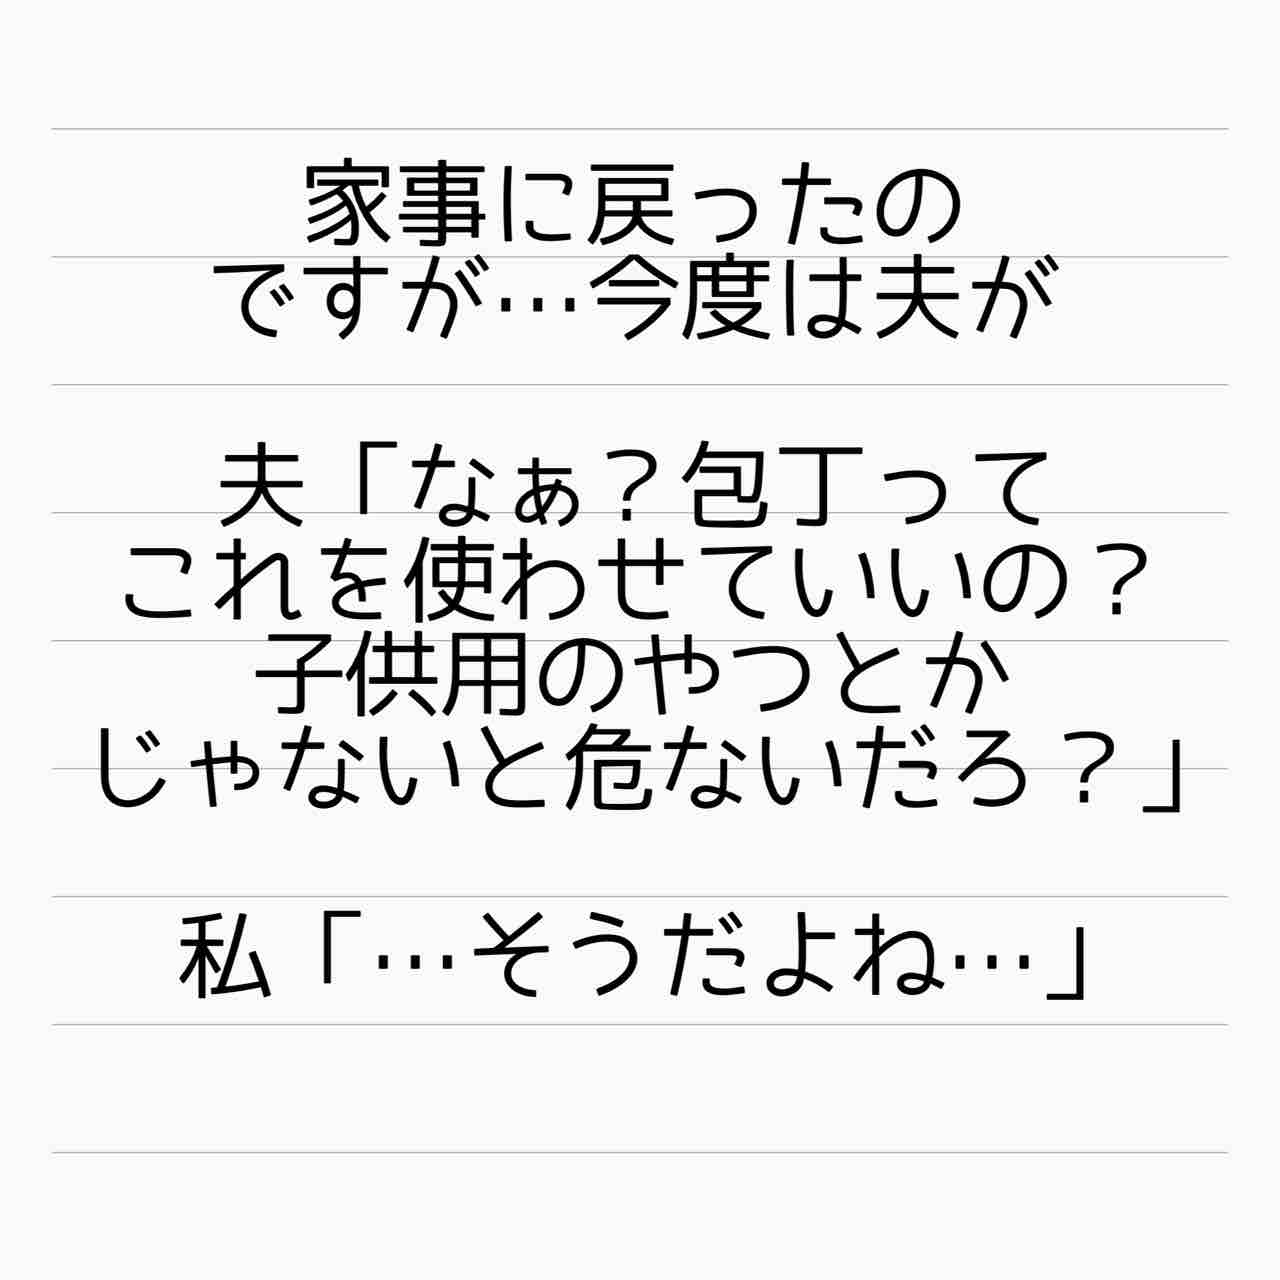 家事に戻ったの
ですが…今度は夫が
夫「なぁ？包丁って
これを使わせていいの？
子供用のやつとか
じゃないと危ないだろ？」
私「…そうだよね…」